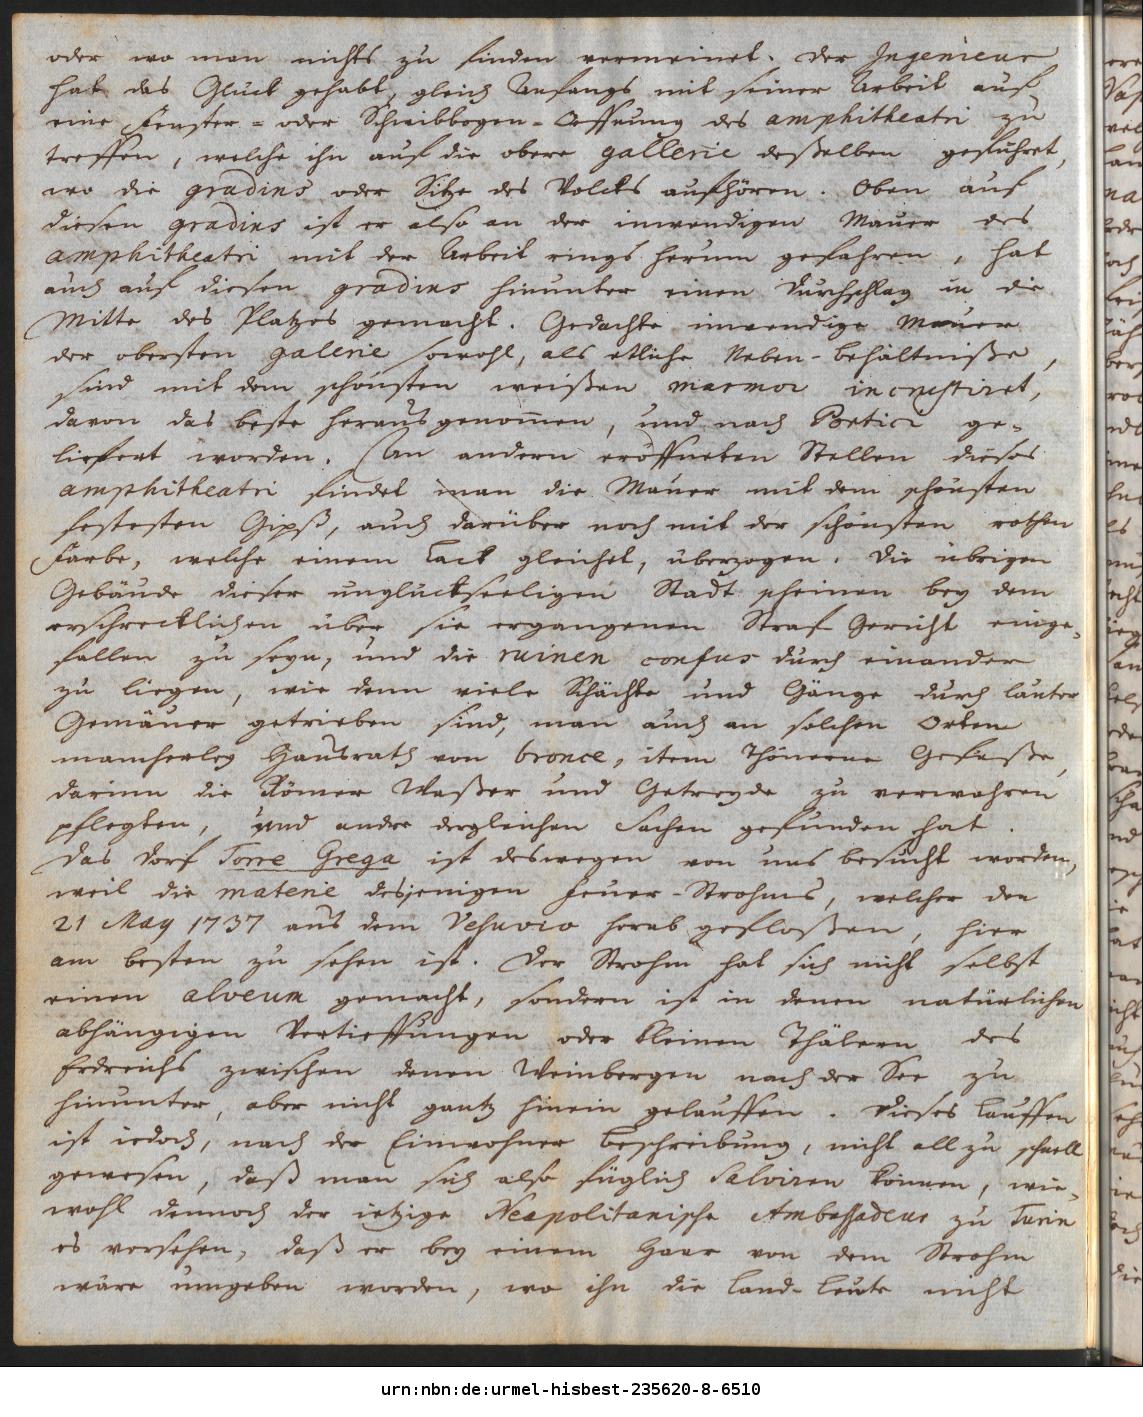 oder wo man nichts zu finden vermeinet. Der Ingenieur
hat das Gluck gehabt, gleich Anfangs mit seiner Arbeit auf
eine Fenster- oder Schwibbogen-Oeffnung des amphitheatri zu
treffen, welche ihn auf die obere gallerie deßelben geführet,
wo die gradins oder Sitze des Volcks aufhören. Oben auf
diesen gradins ist er also an der inwendigen Mauer des
amphitheatri mit der Arbeit rings herum gefahren, hat
auch auf diesen gradins hinunter einen Durchschlag in die
Mitte des Platzes gemacht. Gedachte inwendige Mauer
der obersten galerie sowohl, als etliche Neben-Behältniße,
sind mit dem schönsten weißen marmor incrustiret,
davon das beste heraus genommen, und nach Portici ge-
liefert worden. An andern eröffneten Stellen dieses
amphitheatri findet man die Mauer mit dem schönsten
festesten Gipß, auch darüber noch mit der schönsten rothen
Farbe, welche einem Lack gleichet, überzogen. Die übrigen
Gebäude dieser unglückseeligen Stadt scheinen bey dem
erschrecklichen über sie ergangenen Straf Gericht einge-
fallen zu seyn, und die ruinen confus durch einander
zu liegen, wie denn viele Schächte und Gänge durch lauter
Gemäuer getrieben sind, man auch an solchen Orten
mancherley Hausrath von bronce, item Thönerne Gefäße,
darinn die Römer Waßer und Getreyde zu verwahren
pflegten, und andre dergleichen Sachen gefunden hat.
Das Dorf Torre Grega ist deswegen von uns besucht worden,
weil die materie desjenigen Feuer-Strohms, welcher den
21 May 1737 aus dem Vesuvio herab gefloßen, hier
am besten zu sehen ist. Der Strohm hat sich nicht selbst
einen alveum gemacht, sondern ist in denen natürlichen
abhängigen Vertieffungen oder kleinen Thälern des
Erdreichs zwischen denen Weinbergen nach der See zu
hinunter, aber nicht gantz hinein gelauffen. Dieses Lauffen
ist iedoch, nach der Einwohner Beschreibung, nicht all zu schnell
gewesen, daß man sich also füglich salviren können, wie-
wohl dennoch der ietzige Neapolitanische Ambassadeur zu Turin
es versehen, daß er bey einem Haar von dem Strohm
wäre umgeben worden, wo ihn die Land-Leute nicht
urn:nbn:de:urmel-hisbest-235620-8-6510